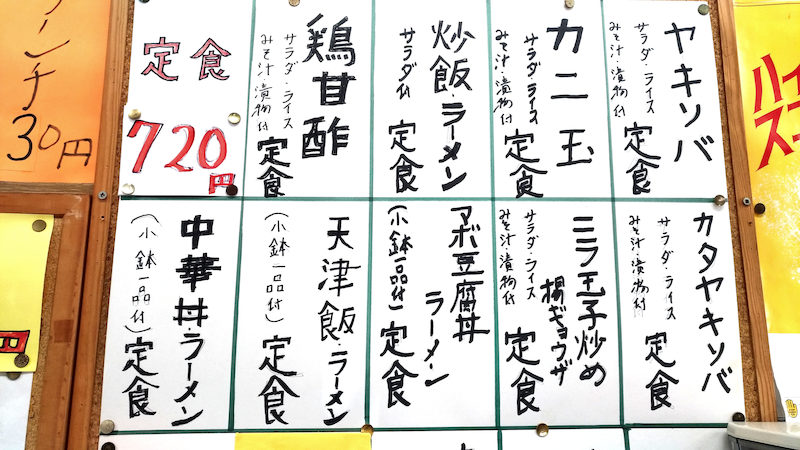 ヤキソバ
サラダ・ライス
みそ汁・漬物付
定食
カニ玉
サラダ・ライス
みそ汁・漬物付
定食
炒飯・ラーメン
サラダ付
定食
鶏甘酢
サラダ・ライス
みそ汁・漬物付
定食
定食
720円
カタヤキソバ
サラダ・ライス
みそ汁・漬物付
定食
ニラ玉子炒め
揚ギョウザ
サラダ・ライス
みそ汁・漬物付
定食
マボ豆腐丼
ラーメン
(小鉢一品付)
定食
天津飯・ラーメン
(小鉢一品付)
定食
中華丼・ラーメン
(小鉢一品付)
定食
ンチ
30円
ハイ